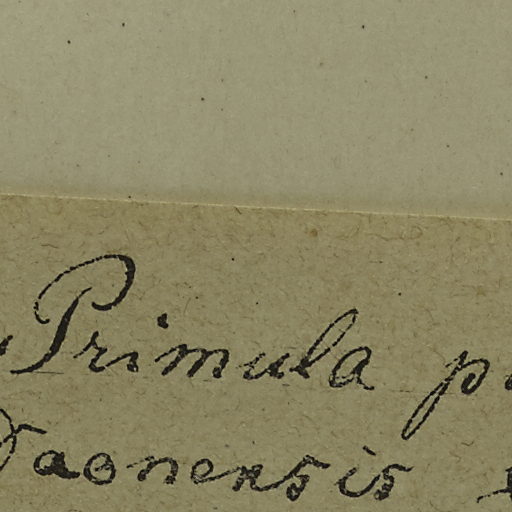 Primula
Daonensis